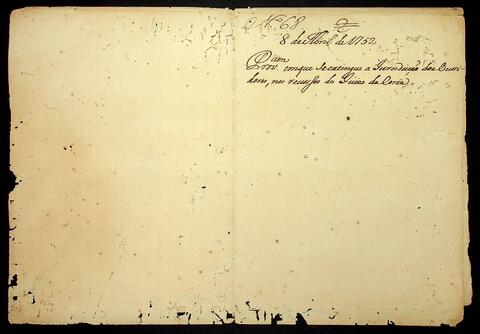 Nº 68
8 de Abril de 1752
Provam em que se extingue a Jurisdição dos Ouvi-
dores, nos recursos do Juizo da Coroa.